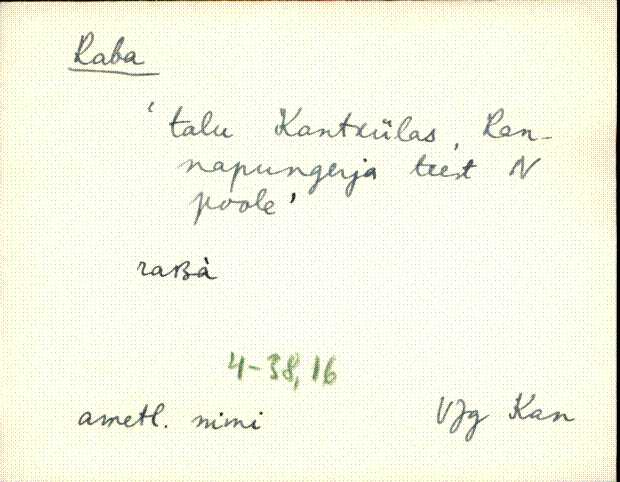 Raba
‘talu Kantxülas, Ran-
napungerja teest N
poole’
raʙà
4-38,16
ametl. nimi VJg Kan